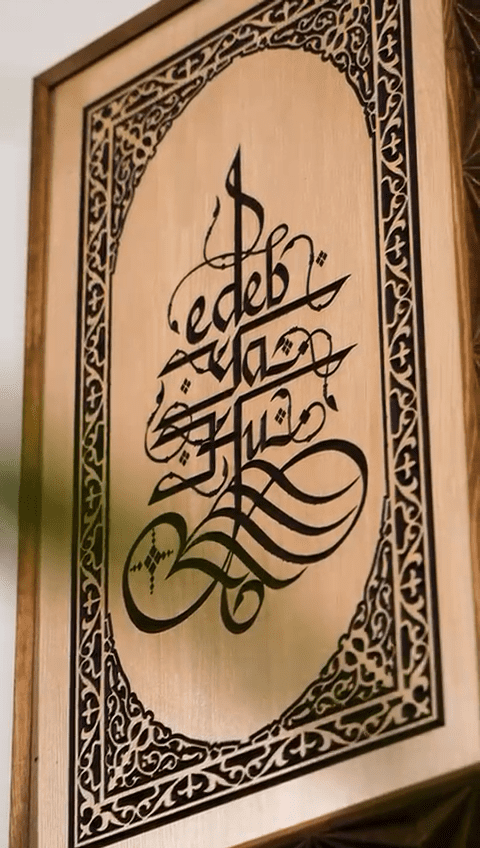 edeb
Ya
Hu